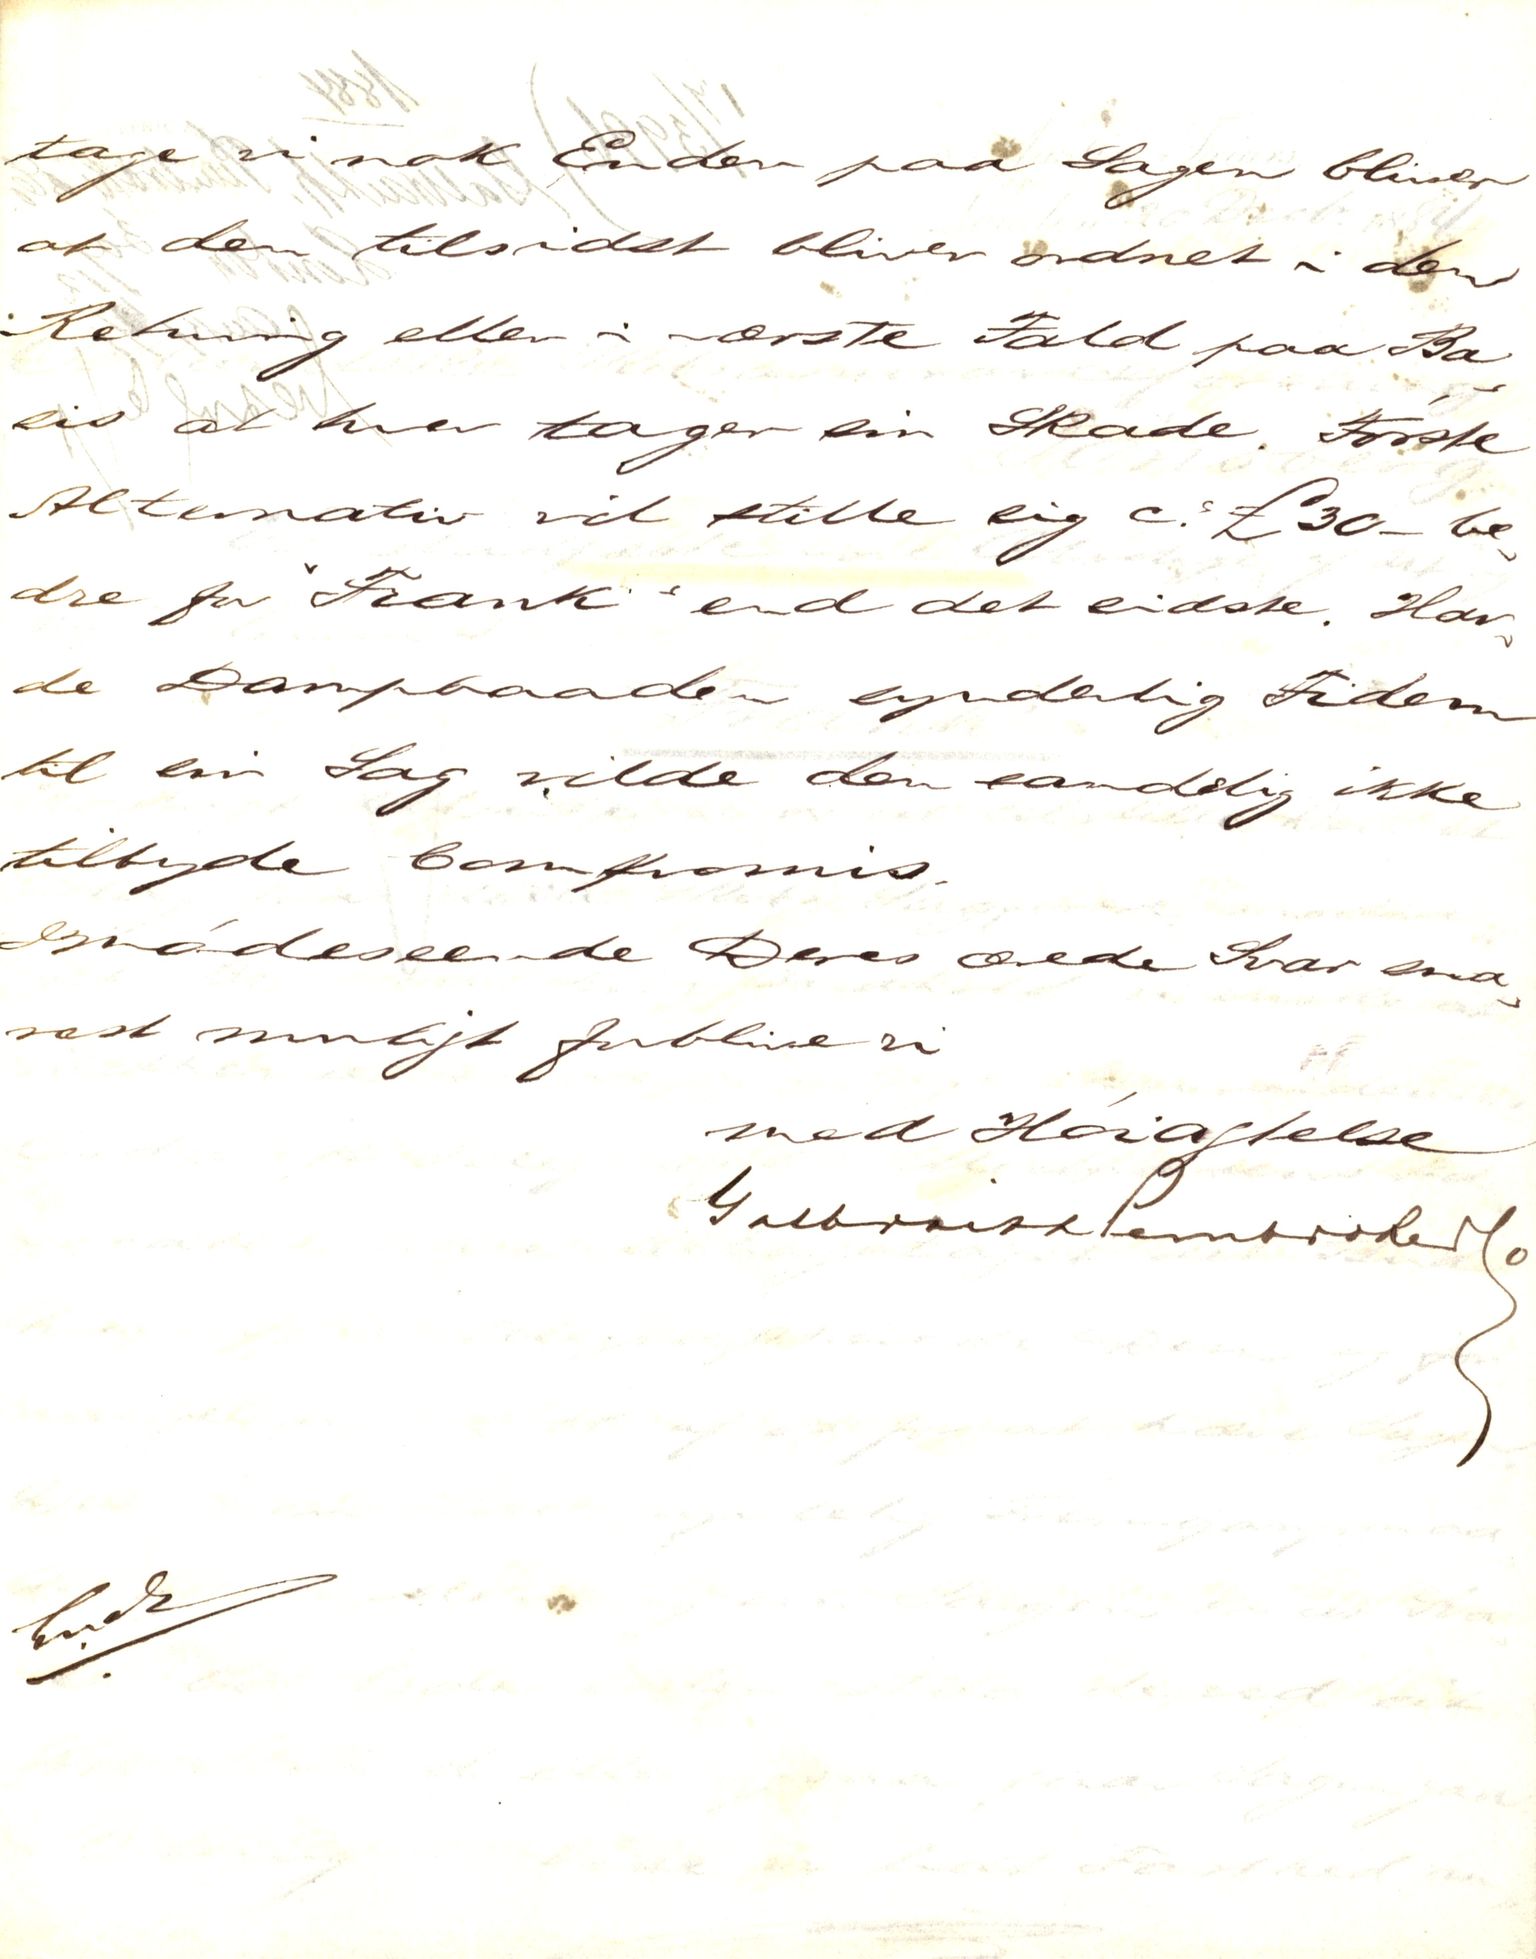 tage vi nok Enden paa Sagen bliver
at den tilsidst bliver ordnet i den
Retning eller i værste Fald paa Ba-
sis at hver tager sin Skade. Første
Alternativ vil stille sig ca £30 – be-
dre for "Frank" end det sidste. Hav-
de Dampbaaden synderlig Fidem
til sin Sag vilde den sandslig ikke
tilbyde Compromis.
Imødeseende Deres ærede Svar sna-
rest muligt forblive vi
med Høiagtelse
Galbraith Pembroke & Co